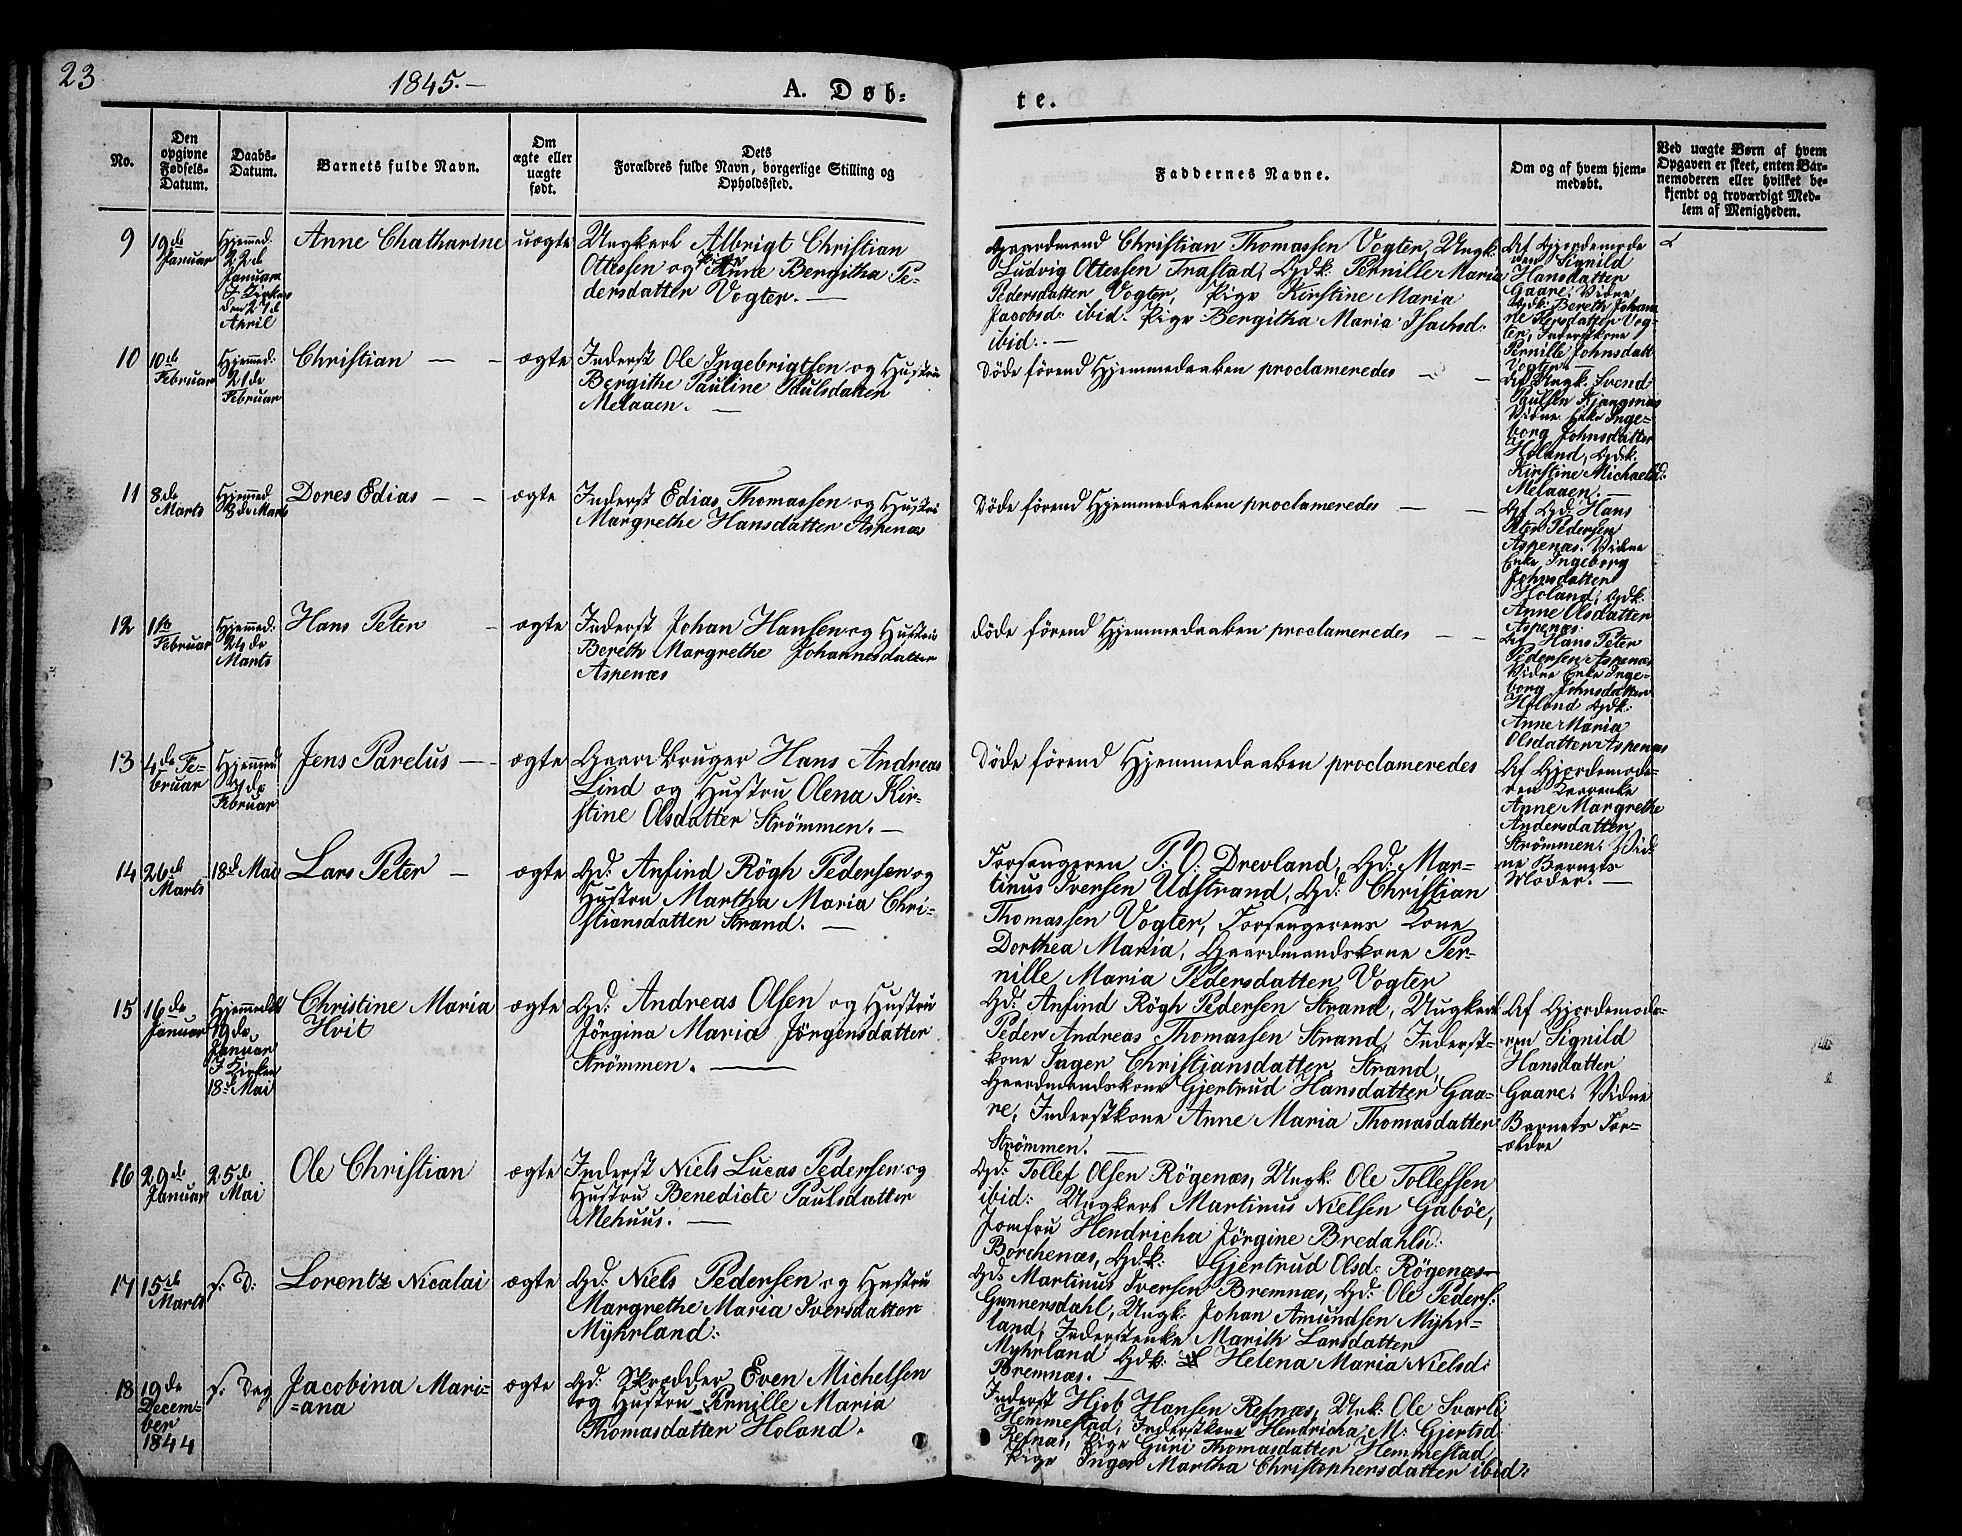 23
1845.-
A. Døb=
te.
No.
Den opgivne Fødsels-Datum.
Daabs-Datum.
Barnets fulde Navn.
Om ægte eller uægte født.
Dets Forældres fulde Navn, borgerlige Stilling og Opholdssted.
Faddernes Navne.
Om og af hvem hjemmedøbt.
Ved uægte Børn af hvem Opgaven er skeet, enten Barnemoderen eller hvilket bekjendt og troværdigt Medlem af Menigheden.
9
19de
Januar
Hjemmed.
22de
Januar
I Kirken
den 27de
April
Anne Chatharine
uægte
Ungkerl Albrigt Christian
Ottessen og Anne Bergitha Pe-
dersdatter Vogter. —
Gaardmand Christian Thomassen Vogter, Ungk.
Ludvig Ottessen Trastad, Gdk. Pernille Maria
Pedersdatter Vogter, Pige Kirstine Maria
Jacobsd. ibid. Pige Bergitha Maria Isachsd.
ibid. —
Af Gjordemode
ren Signild
Hansdatter
Gaare. Vidne
Gdk. Bereth Johan
ne Persdatter Vog-
ter, Inderstkone
Pernille Johnsdatt
Vogter. —
10
10de
Februar
Hjemmed.
21de
Februar
Christian — -
ægte
Inderst Ole Ingebrigtsen og Hustru
Bergithe Pauline Paulsdatter
Melaaen. —
Døde førend Hjemmedaaben proclameredes — -
Af Ungk. Svend
Paulsen Kjangsnæs
Vidne Enke Inge-
borg Johnsdatter
Holand, Gdk.
Kirstine Michaelsd.
Melaaen. —
11
8de
Marts
Hjemmed.
8de Marts
Dores Edias - -
ægte
Inderst Edias Thomassen og Hustru
Margrethe Hansdatter Aspenæs
Døde førend Hjemmedaaben proclameredes — —
Af Gd. Hans
Peter Pedersen
Aspenæs. Vidne
Enke Ingeborg
Johnsdatter
Holand, Gdk.
Anne Olsdatter
Aspenæs.
12
1ste
Februar
Hjemmed.
24de
Marts
Hans Peter -
ægte
Inderst Johan Hansen og Hustru
Bereth Margrethe Johannesdatter
Aspenæs
døde førend Hjemmedaaben proclameredes — -
Af Hans Peter
Pedersen Aspenæs
Vidne Enke Inge-
borg Johnsdatter
Holand Gdk.
Anne Maria
Olsdatter Aspenæs
13
4de Fe-
bruar
Hjemmed
7de
Februar
Jens Parelius — -
ægte
Gaardbruger Hans Andreas
Lind og Hustru Olena Kir-
stine Olsdatter Strømmen. —
Døde førend Hjemmedaaben proclameredes
Af Gjordemode-
ren
Anne Margrethe
Andersdatter
Strømmen. Vid-
ne Barnets
Moder. —
14
26de
Marts
18de Mai
Lars Peter —
ægte
Gd. Anfind Røgh Pedersen og
Hustru Martha Maria Chri-
stiansdatter Strand. —
Forsangeren P. O. Drevland, Gd. Mar-
tinus Iversen Udstrand, Gd. Christian
Thomassen Vogter, Forsangerens Kone
Dorthea Maria, Gaardmandskone Per-
nille Maria Pedersdatter Vogter
15
16de
Januar
Hjemmedøbt
19de
Januar
I Kirken
18de Mai
Christine Maria
Hvit
ægte
Gd. Andreas Olsen og Hustru
Jørgina Maria Jørgensdatter
Strømmen. —
Gd. Anfind Røgh Pedersen Strand, Ungkerl
Peder Andreas Thomassen Strand, Inderst-
kone Inger Christiansdatter Strand,
Gaardmandskone Gjertrud Hansdatter Gaa-
re, Inderstkone Anne Maria Thomasdatter
Strømmen. —
Af Gjordemode-
ren Signild
Hansdatter
Gaare. Vidne
Barnets For-
ældre
16
29de
Januar
25de
Mai
Ole Christian
ægte
Inderst Niels Lucas Pedersen og
Hustru Benedicte Paulsdatter
Mehuus. —
Gd. Tollef Olsen Røgenæs, Ungk. Ole Tollefsen
ibid: Ungkerl Martinus Nielsen Gabøe,
Jomfru Hendricha Jørgine Bredahlsd.
Borchenæs, Gdk. Gjertrud Olsd. Røgenæs
17
15de
Marts
s. D.
Lorentz Nicalai
ægte
Gd. Niels Pedersen og Hustru
Margrethe Maria Iversdatter
Myhrland.
Gd. Martinus Iversen Bremnæs, Gd. Ole Peders.
Gunnersdahl, Ungk. Johan Amundsen Myhr-
land, Inderstenke Marith Larsdatter
Myhrland Gdk. Helena Maria Nielsd.
Bremnæs. —
18
19de
Decem-
ber
1844
s. Dag
Jacobina Mari-
=ana
ægte
Gd. Skrædder Even Michelsen
og Hustru Pernille Maria
Thomasdatter Holand.
Inderst Hjob Hansen Refnæs, Unk. Ole Svarli
Hemmestad, Inderstkone Hendricha M. Gjertsd.
Refnæs, Pige Guri Thomasdatter Hemmestad
Pige Inger Martha Christophersdatter ibid.